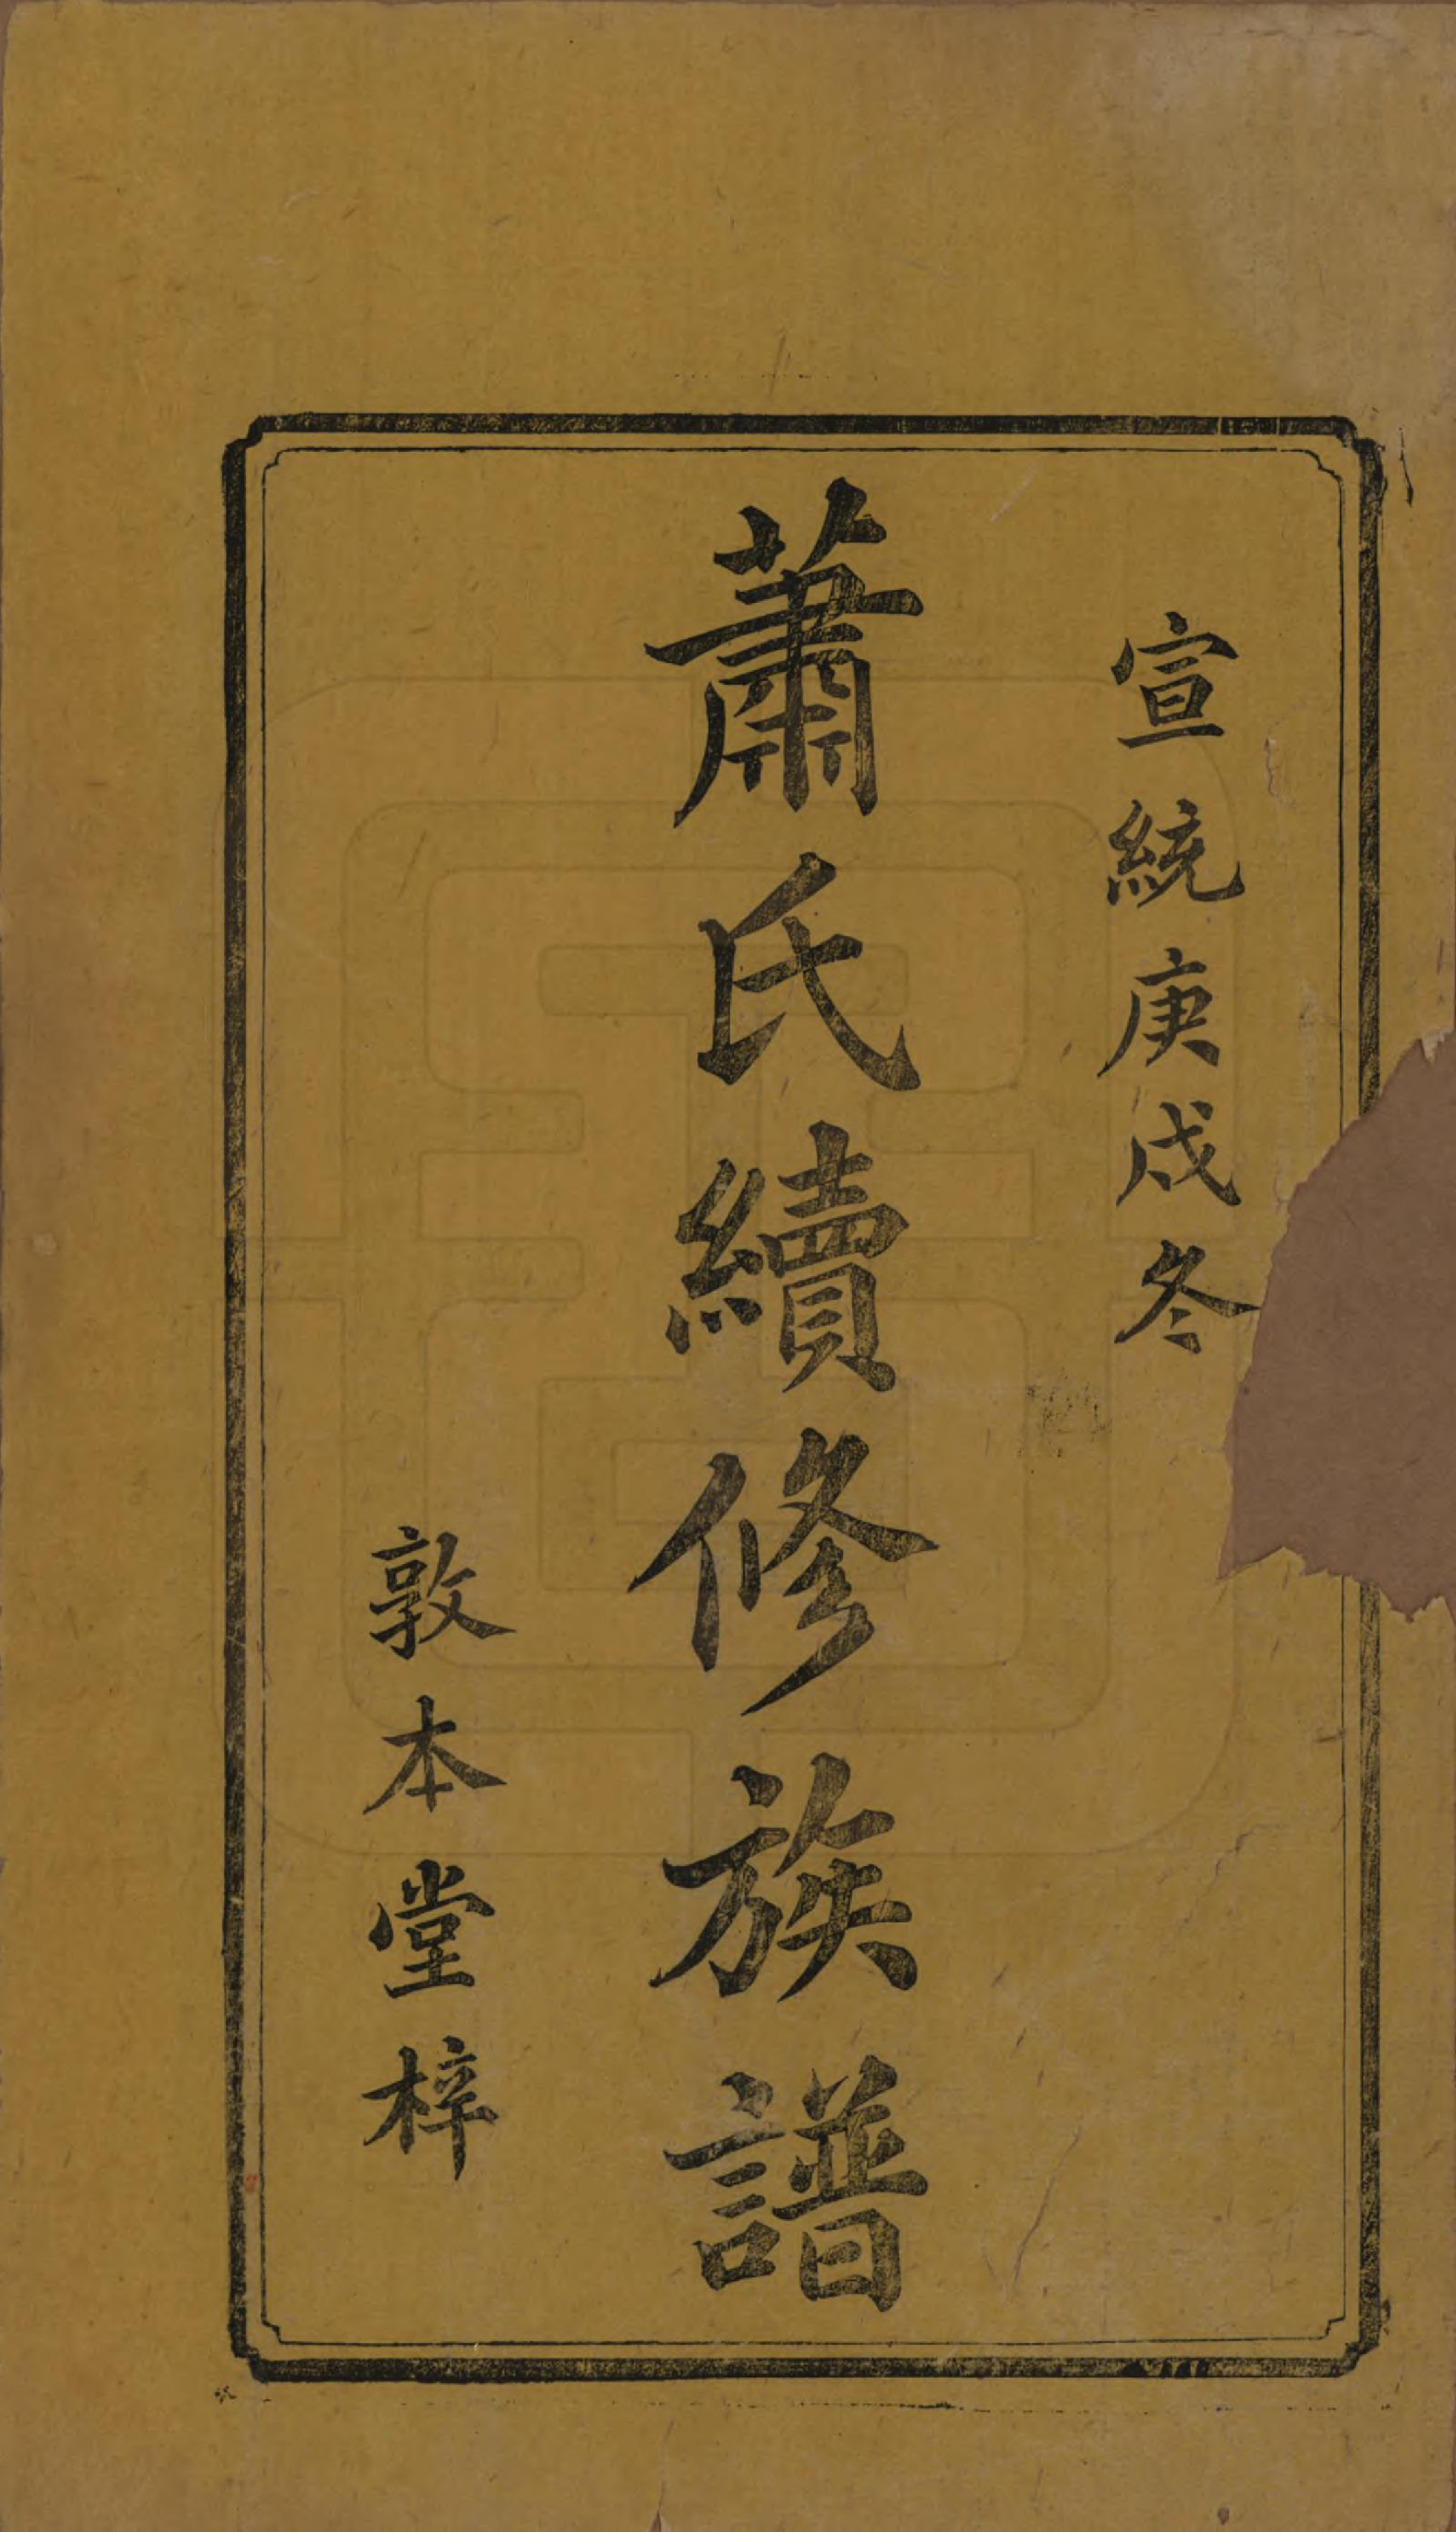 宣統庚戌冬
蕭氏續修族譜
敦本堂梓